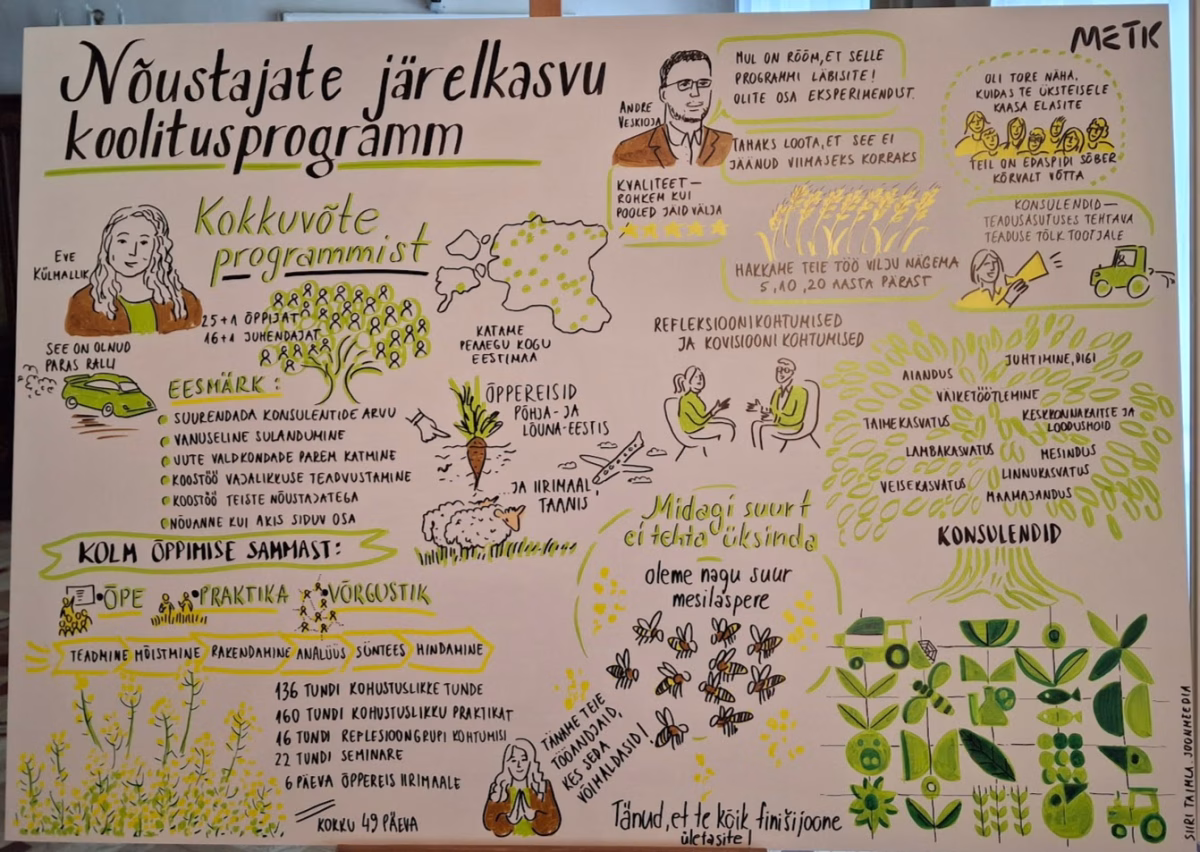 METK
Nõustajate järelkasvu
koolitusprogramm
ANDRE
VESKIOJA
MUL ON RÕÕM, ET SELLE
PROGRAMMI LÄBISITE!
OLITE OSA EKSPERIMENDIST.
TAHAKS LOOTA, ET SEE EI
JÄÄNUD VIIMASEKS KORRAKS
OLI TORE NÄHA,
KUIDAS TE ÜKSTEISELE
KAASA ELASITE
TEIL ON EDASPIDI SÕBER
KÕRVALT VÕTTA
KVALITEET –
ROHKEM KUI
POOLED JÄID VÄLJA
HAKKAME TEIE TÖÖ VILJU NÄGEMA
5, 10, 20 AASTA PÄRAST
KONSULENDID –
TEADUSASUTUSES TEHTAVA
TEADUSE TÕLK TOOTJALE
Kokkuvõte
programmist
EVE
KÜLMALLIK
SEE ON OLNUD
PARAS RALLI
25+1 ÕPPIJAT
16+1 JUHENDAJAT
KATAME
PEAAEGU KOGU
EESTIMAA
EESMÄRK:
SUURENDADA KONSULENTIDE ARVU
VANUSELINE SULANDUMINE
UUTE VALDKONDADE PAREM KATMINE
KOOSTÖÖ VAJALIKKUSE TEADVUSTAMINE
KOOSTÖÖ TEISTE NÕUSTAJATEGA
NÕUANNE KUI AKIS SIDUV OSA
ÕPPEREISID
PÕHJA- JA
LÕUNA-EESTIS
...JA IIRIMAAL,
TAANIS
REFLEKSIOONIKOHTUMISED
JA KOVISIOONIKOHTUMISED
AIANDUS
JUHTIMINE, DIGI
VÄIKETÖÖTLEMINE
TAIMEKASVATUS
KESKKONNAKAITSE JA
LOODUSHOID
LAMBAKASVATUS
MESINDUS
LINNUKASVATUS
VEISEKASVATUS
MAAMAJANDUS
KONSULENDID
KOLM ÕPPIMISE SAMMAST:
• ÕPE • PRAKTIKA • VÕRGUSTIK
TEADMINE MÕISTMINE RAKENDAMINE ANALÜÜS SÜNTEES HINDAMINE
136 TUNDI KOHUSTUSLIKKE TUNDE
160 TUNDI KOHUSTUSLIKKU PRAKTIKAT
16 TUNDI REFLESIOONGRUPI KOHTUMISI
22 TUNDI SEMINARE
6 PÄEVA ÕPPEREIS IIRIMAALE
KOKKU 49 PÄEVA
Midagi suurt
ei tehta üksinda
oleme nagu suur
mesilaspere
TÄNAME TEIE
TÖÖANDJAID,
KES SEDA
VÕIMALDASID!
Tänud, et te kõik finišijoone
ületasite!
SIIRI TAIMLA JOONMEEDIA